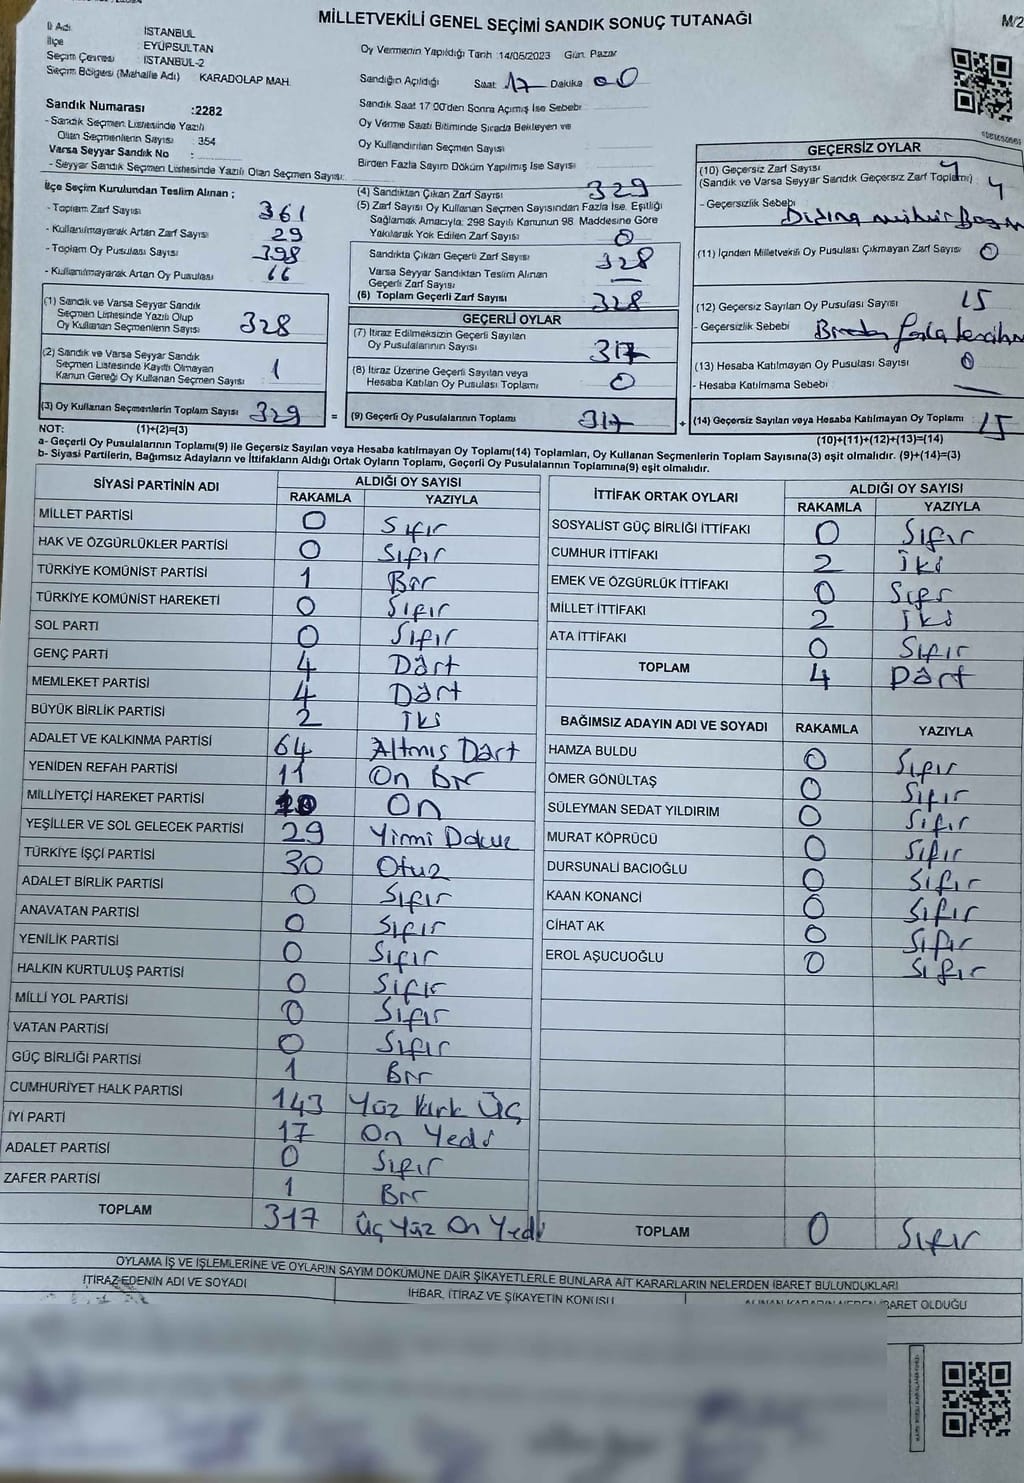 MİLLETVEKİLİ GENEL SEÇİMİ SANDIK SONUÇ TUTANAĞI
M/2
İl Adı İSTANBUL
İlçe EYÜPSULTAN
Seçim Çevresi İSTANBUL-2
Seçim Bölgesi (Mahalle Adı) KARADOLAP MAH.
Sandık Numarası :2282
- Sandık Seçmen Listesinde Yazılı
Olan Seçmenlerin Sayısı : 354
Varsa Seyyar Sandık No :
- Seyyar Sandık Seçmen Listesinde Yazılı Olan Seçmen Sayısı:
Oy Vermenin Yapıldığı Tarih 14/05/2023 Gün Pazar
Sandığın Açıldığı Saat 17 Dakika 00
Sandık Saat 17 00'den Sonra Açımış İse Sebebi
Oy Verme Saati Bitiminde Sırada Bekleyen ve
Oy Kullandırılan Seçmen Sayısı
Birden Fazla Sayım Döküm Yapılmış İse Sayısı
İlçe Seçim Kurulundan Teslim Alınan ;
- Toplam Zarf Sayısı 361
- Kullanılmayarak Artan Zarf Sayısı 29
- Toplam Oy Pusulası Sayısı 398
- Kullanılmayarak Artan Oy Pusulası 66
(1) Sandık ve Varsa Seyyar Sandık
Seçmen Listesinde Yazılı Olup
Oy Kullanan Seçmenlerin Sayısı 328
(2) Sandık ve Varsa Seyyar Sandık
Seçmen Listesinde Kayıtlı Olmayan
Kanun Gereği Oy Kullanan Seçmen Sayısı 1
(3) Oy Kullanan Seçmenlerin Toplam Sayısı 329
(4) Sandıktan Çıkan Zarf Sayısı 329
(5) Zarf Sayısı Oy Kullanan Seçmen Sayısından Fazla İse, Eşitliği
Sağlamak Amacıyla; 298 Sayılı Kanunun 98. Maddesine Göre
Yakılarak Yok Edilen Zarf Sayısı 0
Sandıkta Çıkan Geçerli Zarf Sayısı 328
Varsa Seyyar Sandıktan Teslim Alınan
Geçerli Zarf Sayısı —
(6) Toplam Geçerli Zarf Sayısı 328
GEÇERLİ OYLAR
(7) İtiraz Edilmeksizin Geçerli Sayılan
Oy Pusulalarının Sayısı 317
(8) İtiraz Üzerine Geçerli Sayılan veya
Hesaba Katılan Oy Pusulası Toplamı 0
= (9) Geçerli Oy Pusulalarının Toplamı 317
GEÇERSİZ OYLAR
(10) Geçersiz Zarf Sayısı
(Sandık ve Varsa Seyyar Sandık Geçersiz Zarf Toplamı)
- Geçersizlik Sebebi
(11) İçinden Milletvekili Oy Pusulası Çıkmayan Zarf Sayısı 0
(12) Geçersiz Sayılan Oy Pusulası Sayısı 15
- Geçersizlik Sebebi Birden fazla tercih
(13) Hesaba Katılmayan Oy Pusulası Sayısı 0
- Hesaba Katılmama Sebebi —
+ (14) Geçersiz Sayılan veya Hesaba Katılmayan Oy Toplamı : 15
NOT: (1)+(2)=(3)
(10)+(11)+(12)+(13)=(14)
a- Geçerli Oy Pusulalarının Toplamı(9) ile Geçersiz Sayılan veya Hesaba katılmayan Oy Toplamı(14) Toplamları, Oy Kullanan Seçmenlerin Toplam Sayısına(3) eşit olmalıdır. (9)+(14)=(3)
b- Siyasi Partilerin, Bağımsız Adayların ve İttifakların Aldığı Ortak Oyların Toplamı, Geçerli Oy Pusulalarının Toplamına(9) eşit olmalıdır.
SİYASİ PARTİNİN ADI ALDIĞI OY SAYISI
RAKAMLA YAZIYLA
MİLLET PARTİSİ 0 Sıfır
HAK VE ÖZGÜRLÜKLER PARTİSİ 0 Sıfır
TÜRKİYE KOMÜNİST PARTİSİ 1 Bir
TÜRKİYE KOMÜNİST HAREKETİ 0 Sıfır
SOL PARTİ 0 Sıfır
GENÇ PARTİ 4 Dört
MEMLEKET PARTİSİ 4 Dört
BÜYÜK BİRLİK PARTİSİ 2 İki
ADALET VE KALKINMA PARTİSİ 64 Altmış Dört
YENİDEN REFAH PARTİSİ 11 On Bir
MİLLİYETÇİ HAREKET PARTİSİ 10 On
YEŞİLLER VE SOL GELECEK PARTİSİ 29 Yirmi Dokuz
TÜRKİYE İŞÇİ PARTİSİ 30 Otuz
ADALET BİRLİK PARTİSİ 0 Sıfır
ANAVATAN PARTİSİ 0 Sıfır
YENİLİK PARTİSİ 0 Sıfır
HALKIN KURTULUŞ PARTİSİ 0 Sıfır
MİLLİ YOL PARTİSİ 0 Sıfır
VATAN PARTİSİ 0 Sıfır
GÜÇ BİRLİĞİ PARTİSİ 1 Bir
CUMHURİYET HALK PARTİSİ 143 Yüz Kırk Üç
İYİ PARTİ 17 On Yedi
ADALET PARTİSİ 0 Sıfır
ZAFER PARTİSİ 1 Bir
TOPLAM 317 Üç Yüz On Yedi
İTTİFAK ORTAK OYLARI ALDIĞI OY SAYISI
RAKAMLA YAZIYLA
SOSYALİST GÜÇ BİRLİĞİ İTTİFAKI 0 Sıfır
CUMHUR İTTİFAKI 2 İki
EMEK VE ÖZGÜRLÜK İTTİFAKI 0 Sıfr
MİLLET İTTİFAKI 2 İki
ATA İTTİFAKI 0 Sıfır
TOPLAM 4 Dört
BAĞIMSIZ ADAYIN ADI VE SOYADI RAKAMLA YAZIYLA
HAMZA BULDU 0 Sıfır
ÖMER GÖNÜLTAŞ 0 Sıfır
SÜLEYMAN SEDAT YILDIRIM 0 Sıfır
MURAT KÖPRÜCÜ 0 Sıfır
DURSUNALİ BACIOĞLU 0 Sıfır
KAAN KONANCİ 0 Sıfır
CİHAT AK 0 Sıfır
EROL AŞUCUOĞLU 0 Sıfır
TOPLAM 0 Sıfır
OYLAMA İŞ VE İŞLEMLERİNE VE OYLARIN SAYIM DÖKÜMÜNE DAİR ŞİKAYETLERLE BUNLARA AİT KARARLARIN NELERDEN İBARET BULUNDUKLARI
İTİRAZ EDENİN ADI VE SOYADI
İHBAR, İTİRAZ VE ŞİKAYETİN KONUSU
İBARET OLDUĞU